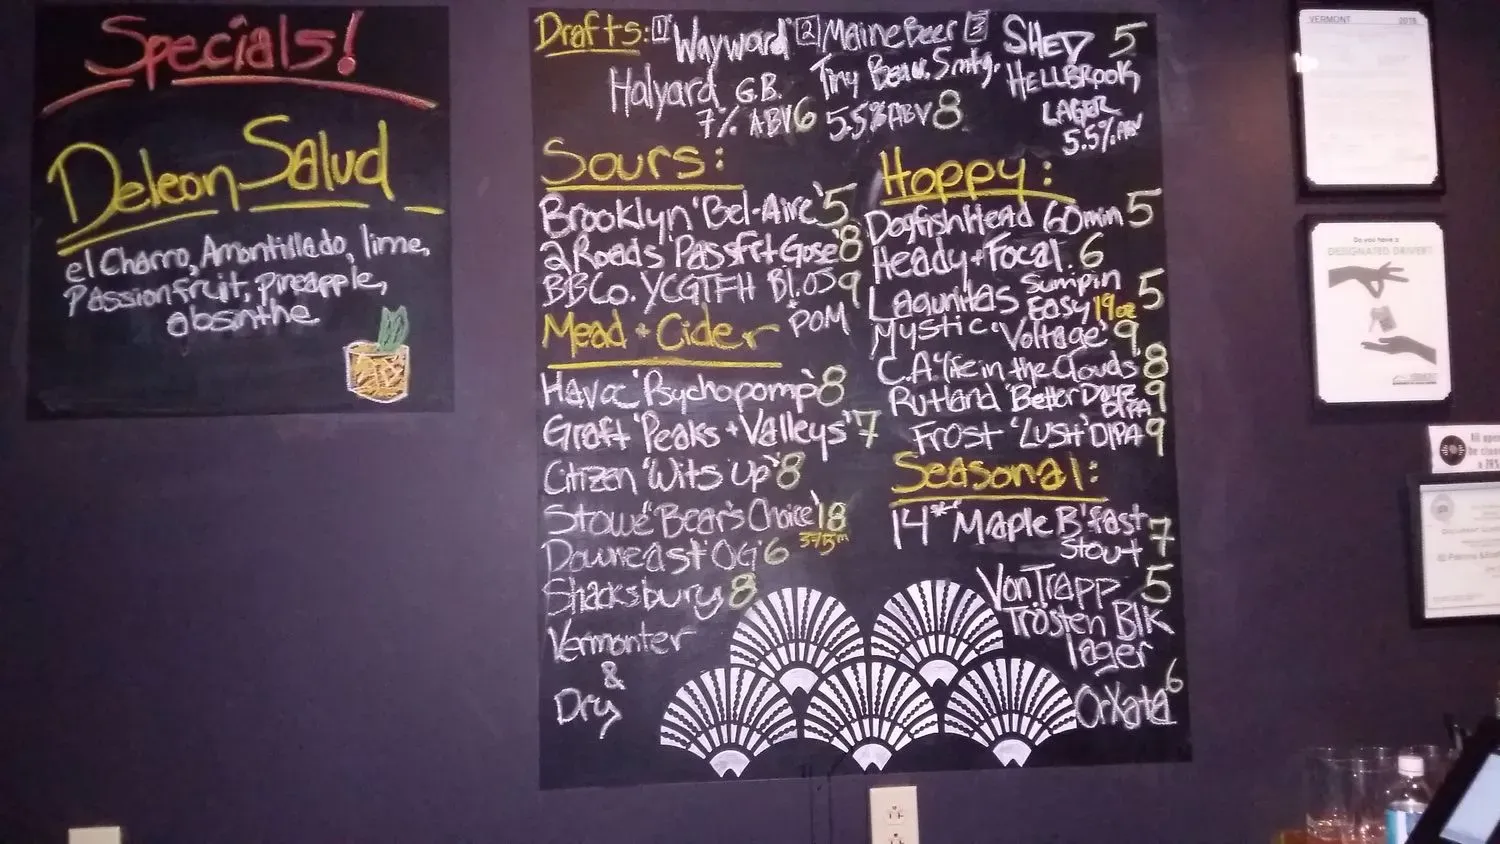 Specials!
Deleon Salud
el Charro, Amontillado, lime,
Passionfruit, pineapple,
absinthe
Drafts: 1 Wayward 2 Maine Beer 3 SHED 5
Halyard G.B. Tiny Beau. Smtg. HELLBROOK
7% ABV 6 5.5% ABV 8 LAGER
5.5% ABV
Sours:
Brooklyn 'Bel-Aire' 5
2 Roads 'PassFrt Gose' 8
BBCo. YCGTFH Bl.OS 9
POM
Mead + Cider
Havoc 'Psychopomp' 8
Graft 'Peaks + Valleys' 7
Citizen 'Wits Up' 8
Stowe 'Bear's Choice' 18
375ml
Downeast 'OG' 6
Shacksbury 8
Vermonter
&
Dry
Hoppy:
Dogfish Head 60 min 5
Heady + Focal 6
Lagunitas Sumpin Easy 19oz 5
Mystic 'Voltage' 9
C.A. 'life in the Clouds' 8
Rutland 'Better Dayz DIPA 9
Frost 'LUSH' DIPA 9
Seasonal:
14* Maple B'fast 7
Stout
Von Trapp 5
Trösten Blk
lager
Orxata 6
VERMONT 2018
Do you have a
DESIGNATED DRIVER?